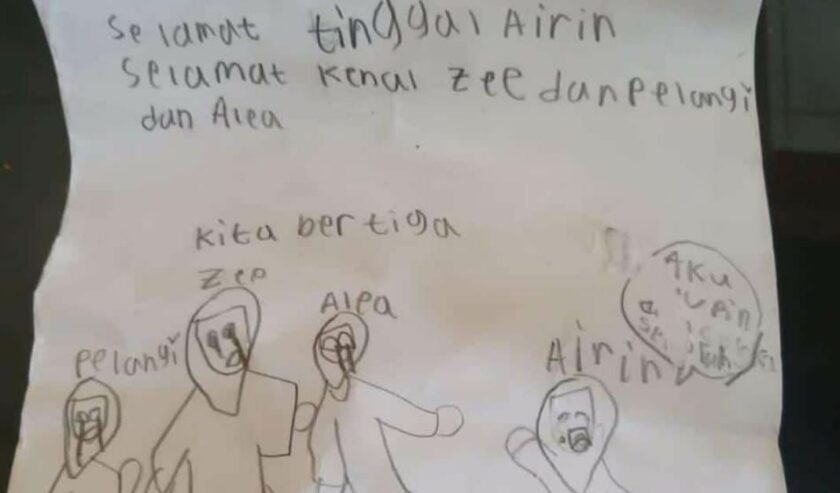 Selamat tinggal Airin
Selamat kenal zee dan pelangi
dan Alea
Kita bertiga
zee
Alea
pelangi
Airin
AKU